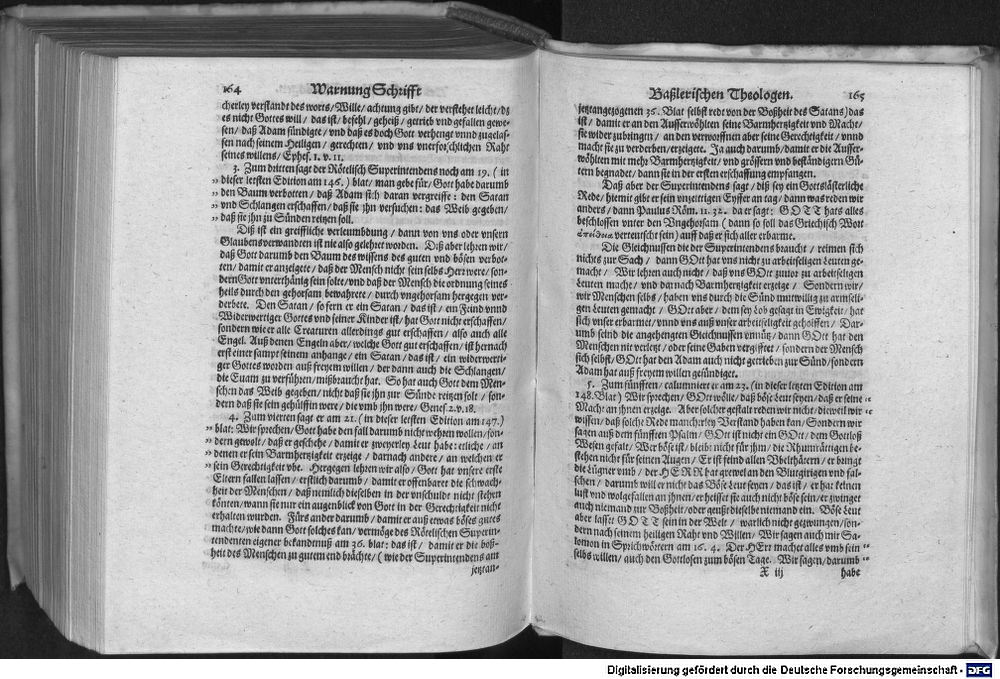 164 Warnung Schrifft
cherley verstandt des worts/ Wille/ achtung gibt/ der verstehet leicht/ dz
es nicht Gottes will/ das ist/ befehl/ geheiß/ getrieb vnd gefallen gewe-
sen/ daß Adam sündigte/ vnd daß es doch Gott verhengt vnnd zugelas-
sen nach seinem Heiligen/ gerechten/ vnd vns vnerforschlichen Raht
seines willens/ Ephes. 1. v. 11.
3. Zum dritten sagt der Rötelisch Superintendens noch am 19. (in
„ dieser letsten Edition am 146.) blat/ man gebe für/ Gott habe darumb
„ den Baum verbotten/ daß Adam sich daran vergreiffe: den Satan
„ vnd Schlangen erschaffen/ daß sie jhn versuchen: das Weib gegeben/
„ daß sie jhn zu Sünden reitzen soll.
Diß ist ein greiffliche verleumbdung/ dann von vns oder vnsern
Glaubensverwandten ist nie also gelehret worden. Diß aber lehren wir/
daß Gott darumb den Baum des wissens des guten vnd bösen verbot-
ten/ damit er anzeigete/ daß der Mensch nicht sein selbs Herr were/ son-
dern Gott vnterthänig sein solte/ vnd daß der Mensch die ordnung seines
heils durch den gehorsam bewahrete/ durch vngehorsam hergegen ver-
derbete. Den Satan/ so fern er ein Satan/ das ist/ ein Feind vnnd
Widerwertiger Gottes vnd seiner Kinder ist/ hat Gott nicht erschaffen/
sondern wie er alle Creaturen allerdings gut erschaffen/ also auch alle
Engel. Auß denen Engeln aber/ welche Gott gut erschaffen/ ist hernach
erst einer sampt seinem anhange/ ein Satan/ das ist/ ein widerwerti-
ger Gottes worden auß freyem willen/ der dann auch die Schlangen/
die Euam zu verführen/ mißbraucht hat. So hat auch Gott dem Men-
schen das Weib gegeben/ nicht daß sie jhn zur Sünde reitzen solt/ son-
dern daß sie sein gehülffin were/ die vmb jhn were/ Genes. 2. v. 18.
4. Zum vierten sagt er am 21. (in dieser letsten Edition am 147.)
„ blat: Wir sprechen/ Gott habe den fall darumb nicht wehren wollen/ son-
„ dern gewolt/ daß er geschehe/ damit er zweyerley Leut habe: etliche/ an
„ denen er sein Barmhertzigkeit erzeige/ darnach andere/ an welchen er
„ sein Gerechtigkeit vbe. Hergegen lehren wir also/ Gott hat vnsere erste
Eltern fallen lassen/ erstlich darumb/ damit er offenbaret die schwach-
heit der Menschen/ daß nemlich dieselben in der vnschuldt nicht stehen
könten/ wann sie nur ein augenblick von Gott in der Gerechtigkeit nicht
erhalten wurden. Fürs ander darumb/ damit er auß etwas böses gutes
machte/ wie dann Gott solches kan/ vermöge des Rötelischen Superin-
tendenten eigener bekandtnuß am 36. blat: das ist/ damit er die boß-
heit des Menschen zu gutem end brächte/ (wie der Superintendens am
jetztan-
Baßlerischen Theologen. 165
jetzt angezogenen 36. Blat selbst redt von der Boßheit des Satans) das
ist/ damit er an den Ausserwöhlten seine Barmhertzigkeit vnd Macht/
sie wider zubringen/ an den verworffnen aber seine Gerechtigkeit/ vnnd
macht sie zu verderben/ erzeigete. Ja auch darumb/ damit er die Ausser-
wöhlten mit mehr Barmhertzigkeit/ vnd grössern vnd beständigern Gü-
tern begnadet/ dann sie in der ersten erschaffung empfangen.
Daß aber der Superintendens sagt/ diß sey ein Gottslästerliche
Rede/ hiemit gibt er sein vnzeitigen Eyffer an tag/ dann was reden wir
anders/ dann Paulus Röm. 11. 32. da er sagt: GOTT hats alles
beschlossen vnter den Vngehorsam (dann so soll das Griechisch Wort
ἀπείθεια verteutscht sein) auff daß er sich aller erbarme.
Die Gleichnussen die der Superintendens braucht/ reimen sich
nichts zur Sach/ dann GOtt hat vns nicht zu arbeitseligen Leuten ge-
macht/ Wir lehren auch nicht/ daß vns GOtt zuuor zu arbeitseligen
Leuten macht/ vnd darnach Barmhertzigkeit erzeige/ Sondern wir/
wir Menschen selbs/ haben vns durch die Sünd mutwillig zu armseli-
gen Leuten gemacht/ GOtt aber/ dem sey Lob gesagt in Ewigkeit/ hat
sich vnser erbarmet/ vnnd vns auß vnser arbeitseligkeit geholffen/ Dar-
umb seind die angehengten Gleichnussen vnnütz/ dann GOtt hat den
Menschen nie verletzt/ oder seine Gaben vergifftet/ sondern der Mensch
sich selbst/ GOtt hat den Adam auch nicht getrieben zur Sünd/ sondern
Adam hat auß freyem willen gesündiget.
5. Zum fünfften/ calumniert er am 23. (in dieser letzten Edition am
148. Blat) Wir sprechen/ GOtt wölle/ daß böse Leut seyen/ daß er seine “
Macht an jhnen erzeige. Aber solcher gestalt reden wir nicht/ dieweil wir “
wissen/ daß solche Rede mancherley Verstand haben kan/ Sondern wir
sagen auß dem fünfften Psalm/ GOtt ist nicht ein GOtt/ dem Gottloß
Wesen gefalt/ Wer böse ist/ bleibt nicht für jhm/ die Rhumrätigen be-
stehen nicht für seinen Augen/ Er ist feind allen Vbelthätern/ er bringt
die Lügner vmb/ der HERR hat grewel an den Blutgirigen vnd fal-
schen/ darumb will er nicht das Böse Leut seyen/ das ist/ er hat keinen
lust vnd wolgefallen an jhnen/ er heisset sie auch nicht böse sein/ er zwinget
auch niemand zur Boßheit/ oder geußt dieselbe niemand ein. Böse Leut
aber lasset GOTT sein in der Welt/ warlich nicht gezwungen/ son-
dern nach seinem heiligen Raht vnd Willen/ Wir sagen auch mit Sa-
lomon in Sprichwörtern am 16. 4. Der HErr macht alles vmb sein “
selbs willen/ auch den Gottlosen zum bösen Tage. Wir sagen/ darumb “
X iij habe
Digitalisierung gefördert durch die Deutsche Forschungsgemeinschaft - DFG